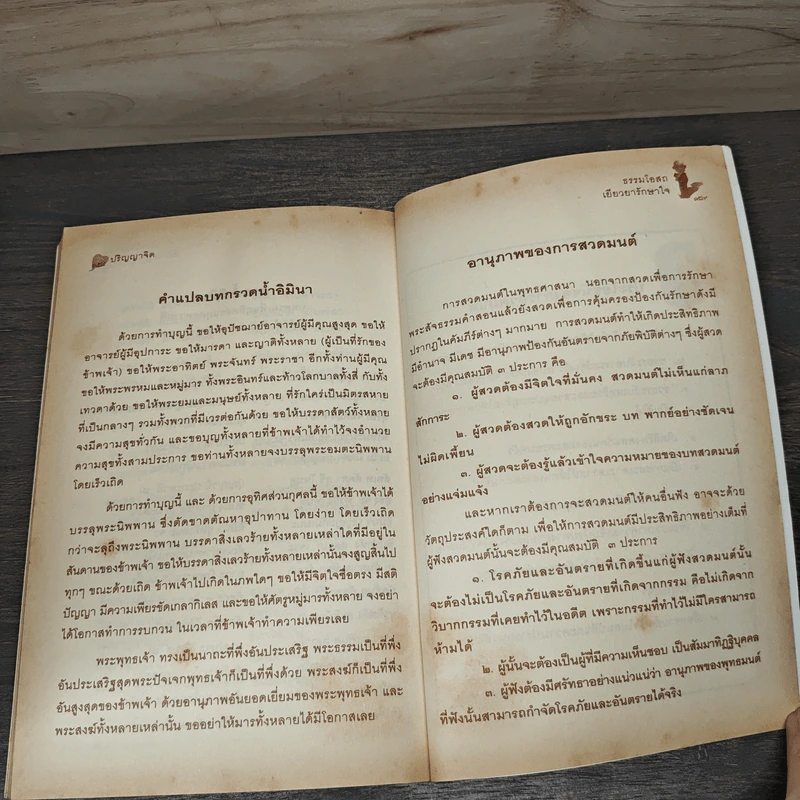 ปริญญาจิต
คำแปลบทกรวดน้ำอิมินา
ด้วยการทำบุญนี้ ขอให้อุปัชฌาย์อาจารย์ผู้มีคุณสูงสุด ขอให้
อาจารย์ผู้มีอุปการะ ขอให้มารดา และญาติทั้งหลาย (ผู้เป็นที่รักของ
ข้าพเจ้า) ขอให้พระอาทิตย์ พระจันทร์ พระราชา อีกทั้งท่านผู้มีคุณ
ขอให้พระพรหมและหมู่มาร ทั้งพระอินทร์และท้าวโลกบาลทั้งสี่ กับทั้ง
เทวดาด้วย ขอให้พระยมและมนุษย์ทั้งหลาย ที่รักใคร่เป็นมิตรสหาย
ที่เป็นกลางๆ รวมทั้งพวกที่มีเวรต่อกันด้วย ขอให้บรรดาสัตว์ทั้งหลาย
จงมีความสุขทั่วกัน และขอบุญทั้งหลายที่ข้าพเจ้าได้ทำไว้จงอำนวย
ความสุขทั้งสามประการ ขอท่านทั้งหลายจงบรรลุพระอมตะนิพพาน
โดยเร็วเถิด
ด้วยการทำบุญนี้ และ ด้วยการอุทิศส่วนกุศลนี้ ขอให้ข้าพเจ้าได้
บรรลุพระนิพพาน ซึ่งตัดขาดตัณหาอุปาทาน โดยง่าย โดยเร็วเถิด
กว่าจะลุถึงพระนิพพาน บรรดาสิ่งเลวร้ายทั้งหลายเหล่าใดที่มีอยู่ใน
สันดานของข้าพเจ้า ขอให้บรรดาสิ่งเลวร้ายทั้งหลายเหล่านั้นจงสูญสิ้นไป
ทุกๆ ขณะด้วยเถิด ข้าพเจ้าไปเกิดในภพใดๆ ขอให้มีจิตใจซื่อตรง มีสติ
ปัญญา มีความเพียรขัดเกลากิเลส และขอให้ศัตรูหมู่มารทั้งหลาย จงอย่า
ได้โอกาสทำการรบกวน ในเวลาที่ข้าพเจ้าทำความเพียรเลย
พระพุทธเจ้า ทรงเป็นนาถะที่พึ่งอันประเสริฐ พระธรรมเป็นที่พึ่ง
อันประเสริฐสุดพระปัจเจกพุทธเจ้าก็เป็นที่พึ่งด้วย พระสงฆ์ก็เป็นที่พึ่ง
อันสูงสุดของข้าพเจ้า ด้วยอานุภาพอันยอดเยี่ยมของพระพุทธเจ้า และ
พระสงฆ์ทั้งหลายเหล่านั้น ขออย่าให้มารทั้งหลายได้มีโอกาสเลย
ธรรมโอสถ
เยียวยารักษาใจ
อานุภาพของการสวดมนต์
การสวดมนต์ในพุทธศาสนา นอกจากสวดเพื่อการรักษา
พระสัจธรรมคำสอนแล้วยังสวดเพื่อการคุ้มครองป้องกันรักษาดังมี
ปรากฏในคัมภีร์ต่างๆ มากมาย การสวดมนต์ทำให้เกิดประสิทธิภาพ
มีอำนาจ มีเดช มีอานุภาพป้องกันอันตรายจากภัยพิบัติต่างๆ ซึ่งผู้สวด
จะต้องมีคุณสมบัติ ๓ ประการ คือ
๑. ผู้สวดต้องมีจิตใจที่มั่นคง สวดมนต์ไม่เห็นแก่ลาภ
สักการะ
๒. ผู้สวดต้องสวดให้ถูกอักขระ บท พากย์อย่างชัดเจน
ไม่ผิดเพี้ยน
๓. ผู้สวดจะต้องรู้แล้วเข้าใจความหมายของบทสวดมนต์
อย่างแจ่มแจ้ง
และหากเราต้องการจะสวดมนต์ให้คนอื่นฟัง อาจจะด้วย
วัตถุประสงค์ใดก็ตาม เพื่อให้การสวดมนต์มีประสิทธิภาพอย่างเต็มที่
ผู้ฟังสวดมนต์นั้นจะต้องมีคุณสมบัติ ๓ ประการ
๑. โรคภัยและอันตรายที่เกิดขึ้นแก่ผู้ฟังสวดมนต์นั้น
จะต้องไม่เป็นโรคภัยและอันตรายที่เกิดจากกรรม คือไม่เกิดจาก
วิบากกรรมที่เคยทำไว้ในอดีต เพราะกรรมที่ทำไว้ไม่มีใครสามารถ
ห้ามได้
๒. ผู้นั้นจะต้องเป็นผู้ที่มีความเห็นชอบ เป็นสัมมาทิฏฐิบุคคล
๓. ผู้ฟังต้องมีศรัทธาอย่างแน่วแน่ว่า อานุภาพของพุทธมนต์
ที่ฟังนั้นสามารถกำจัดโรคภัยและอันตรายได้จริง